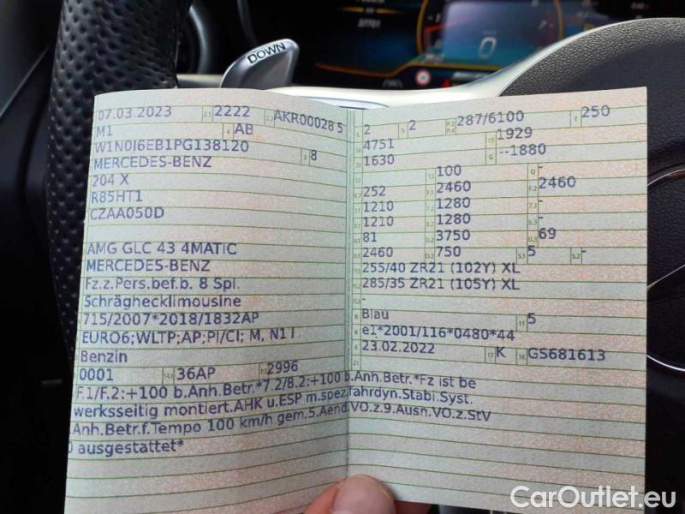 DOWN
07.03.2023 2222 AKR00028 5
M1 AB
W1N0J6EB1PG138120 8
MERCEDES-BENZ
204 X
R85HT1
CZAA050D
AMG GLC 43 4MATIC
MERCEDES-BENZ
Fz.z.Pers.bef.b. 8 Spl.
Schräghecklimousine
715/2007*2018/1832AP
EURO6;WLTP;AP;PI/CI; M, N1 I
Benzin
0001 36AP 2996
F.1/F.2:+100 b.Anh.Betr.*7.2/8.2:+100 b.Anh.Betr.*Fz ist be
werksseitig montiert.AHK u.ESP m.spez.fahrdyn.Stabi.Syst.
Anh.Betr.f.Tempo 100 km/h gem.5.Aend.VO.z.9.Ausn.VO.z.StV
O ausgestattet*
2 2 287/6100 250
4751 1929
1630 --1880
100 -
252 2460 2460
1210 1280 -
1210 1280 -
81 3750 69
2460 750 5 -
255/40 ZR21 (102Y) XL
285/35 ZR21 (105Y) XL
-
Blau 5
e1*2001/116*0480*44
23.02.2022 K GS681613
CarOutlet.eu